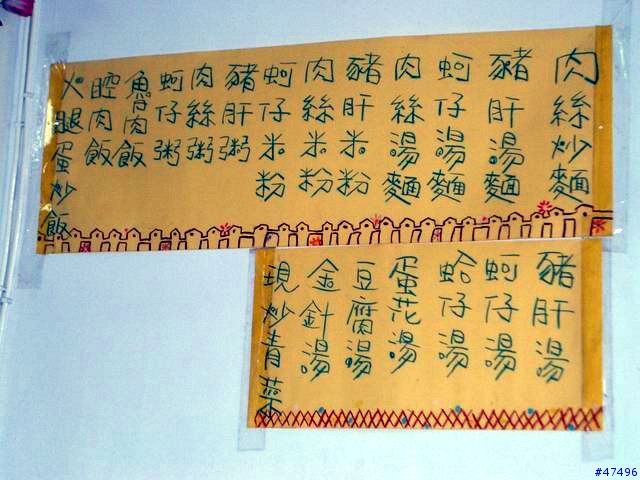 肉絲炒麵
豬肝湯麵
蚵仔湯麵
肉絲湯麵
豬肝米粉
肉絲米粉
蚵仔米粉
豬肝粥
肉絲粥
蚵仔粥
魯肉飯
腔肉飯
火腿蛋炒飯
豬肝湯
蚵仔湯
蛤仔湯
蛋花湯
豆腐湯
金針湯
現炒青菜
#47496